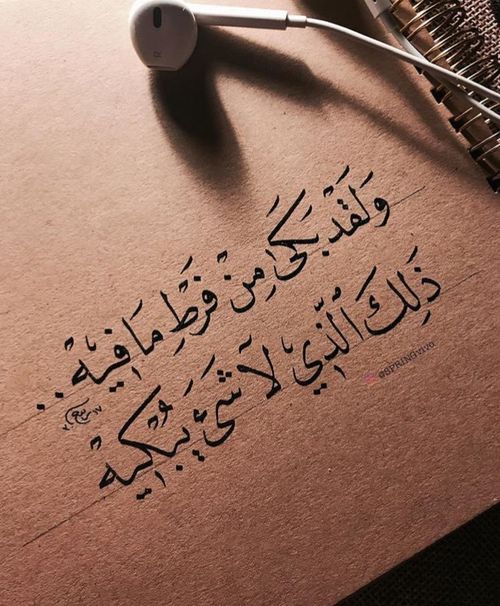 وَلَقَدْ بَكَىٰ مِنْ فَرْطِ مَا فِيهْ..
ذَلِكَ الَّذِي لَا شَيْءَ يُبْكِيهْ
@SPRING2170